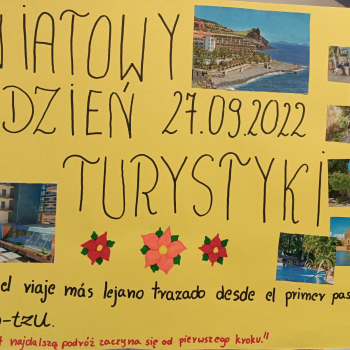 IATOWY
DZIEŃ 27.09.2022
TURYSTYKI
el viaje más lejano trazado desde el primer pas
-tzu.
najdalszą podróż zaczyna się od pierwszego kroku."